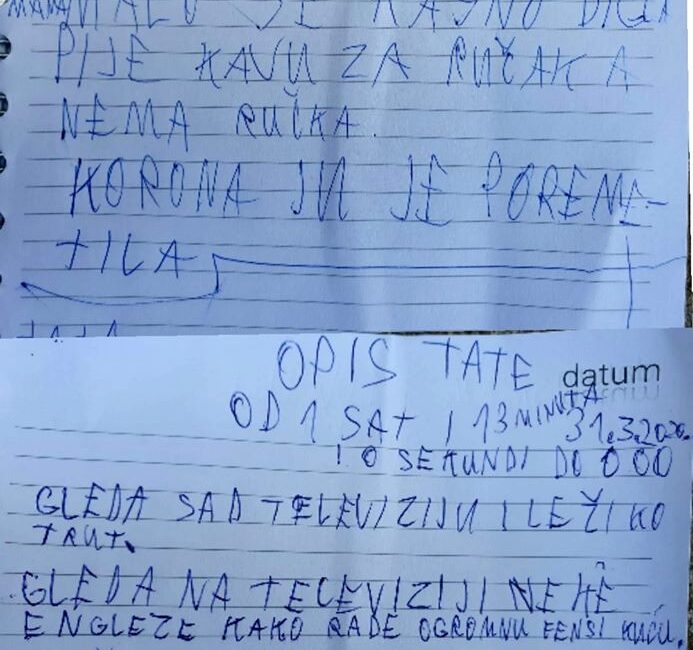 SE KASNO DIGLA
PIJE KAVU ZA RUČAK A
NEMA RUČKA.
KORONA JU JE POREME-
TILA
OPIS TATE
datum
OD 1 SAT I 13 MINUTA
31.3.2020.
I 0 SEKUNDI DO 0 00
GLEDA SAD TELEVIZIJU I LEŽI KO
TRUT.
GLEDA NA TELEVIZIJI NEKE
ENGLEZE KAKO RADE OGROMNU FENSI KUĆU.